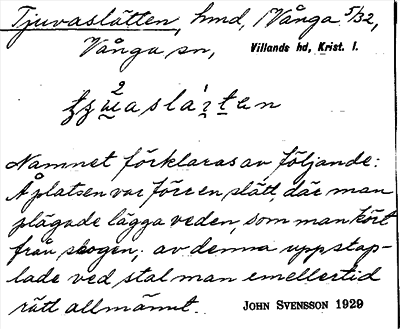 Tjuvaslätten, hmd, /Vånga 5/32,
Vånga sn, Villands hd, Krist. l.
Namnet förklaras av följande:
Å platsen var förr en slätt, där man
plägade lägga veden, som man kört
från skogen; av denna uppstap-
lade ved stal man emellertid
rätt allmännt.
JOHN SVENSSON 1929